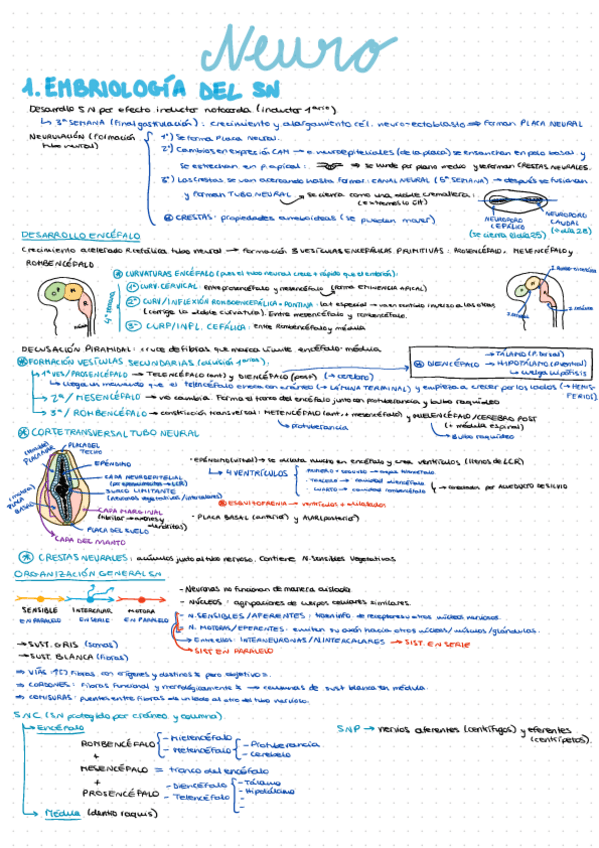 Neuro
1. EMBRIOLOGÍA DEL SN
Desarrollo SN por efecto inductor notocorda (inductor 1ario)
↳ 3ª SEMANA (final gastrulación): crecimiento y alargamiento cél. neuro-ectoblasto ⇒ forman PLACA NEURAL
NEURULACIÓN (formación tubo neural)
1º) Se forma PLACA NEURAL.
2º) Cambios en expresión CAM → c. neuroepiteliales (de la placa) se ensanchan en polo basal y
se estrechan en p. apical: → se hunde por plano medio y se forman CRESTAS NEURALES.
3º) Las crestas se van acercando hasta formar: CANAL NEURAL → después se fusionan
y forman TUBO NEURAL → se cierra como una doble cremallera:
NEUROPORO CEFÁLICO (se cierra día 25)
NEUROPORO CAUDAL (día 28)
CRESTAS: propiedades ameboideas (se pueden mover)
DESARROLLO ENCÉFALO
Crecimiento acelerado R. cefálica tubo neural → Formación 3 VESÍCULAS ENCEFÁLICAS PRIMITIVAS: PROSENCÉFALO, MESENCÉFALO y
ROMBENCÉFALO
CURVATURAS ENCÉFALO (pues el tubo neural crece + rápido que el embrión):
4ª semana
1ª CURV. CERVICAL:
2ª CURV/INFLEXIÓN ROMBOENCEFÁLICA = PONTINA: la + especial → va en sentido inverso a las otras
(corrige la doble curvatura). Entre mesencéfalo y rombencéfalo.
3ª CURV/INFL. CEFÁLICA: entre Rombencéfalo y médula
DECUSACIÓN PIRAMIDAL: cruce de fibras que marca límite encéfalo-médula
FORMACIÓN VESÍCULAS SECUNDARIAS
1ª VES/PROSENCÉFALO → TELENCÉFALO (ant) y DIENCÉFALO (post) (→ cerebro)
DIENCÉFALO
→ TÁLAMO
→ HIPOTÁLAMO
↳ cuelga hipófisis
↳ Llega un momento que el telencéfalo choca con cráneo (→ LÁMINA TERMINAL) y empieza a crecer por los lados (→ HEMISFERIOS).
2ª / MESENCÉFALO → no cambia. Forma el tronco del encéfalo junto con protuberancia y bulbo raquídeo
3ª / ROMBENCÉFALO → constricción transversal: METENCÉFALO (ant. + mesencéfalo) y MIELENCÉFALO/CEREBRO POST
↳ protuberancia
(+ médula espinal)
↳ Bulbo raquídeo
CORTE TRANSVERSAL TUBO NEURAL
PLACA DEL TECHO
PLACA ALAR
EPÉNDIMO
CAPA NEUROEPITELIAL
SURCO LIMITANTE
PLACA BASAL
CAPA MARGINAL
PLACA DEL SUELO
CAPA DEL MANTO
· EPÉNDIMO → se dilata mucho en encéfalo y crea ventrículos (llenos de LCR)
↳ 4 VENTRÍCULOS
- TERCERO → cavidad diencéfalo
- CUARTO → cavidad rombencéfalo
→ conectados por ACUEDUCTO DE SILVIO
ESQUIZOFRENIA → ventrículos + dilatados
· PLACA BASAL (anterior) y ALAR (posterior)
CRESTAS NEURALES: acúmulos junto al tubo nervioso. Contiene N. sensibles vegetativas
ORGANIZACIÓN GENERAL SN
SENSIBLE EN PARALELO
INTERCALAR EN SERIE
MOTORA EN PARALELO
- Neuronas no funcionan de manera aislada
- NÚCLEOS: agrupaciones de cuerpos celulares similares.
- N. SENSIBLES/AFERENTES:
- N. MOTORAS/EFERENTES: emiten su axón hacia otros núcleos/músculos/glándulas.
→ Entre ellas: INTERNEURONAS/N. INTERCALARES → SIST. EN SERIE
→ SIST EN PARALELO
→ SUST. GRIS (somas)
→ SUST. BLANCA (fibras)
⇒ VÍAS:
⇒ CORDONES: → columnas de sust blanca en médula.
⇒ COMISURAS: puentes entre fibras de un lado al otro del tubo nervioso.
SNC (SN protegido por cráneo y columna)
SNP → nervios aferentes (centrífugos) y eferentes (centrípetos).
→ Encéfalo
ROMBENCÉFALO
- Mielencéfalo
- Metencéfalo
- Protuberancia
- Cerebelo
+
MESENCÉFALO = tronco del encéfalo
+
PROSENCÉFALO
- Diencéfalo
- Telencéfalo
- Tálamo
- Hipotálamo
→ Médula (dentro raquis)